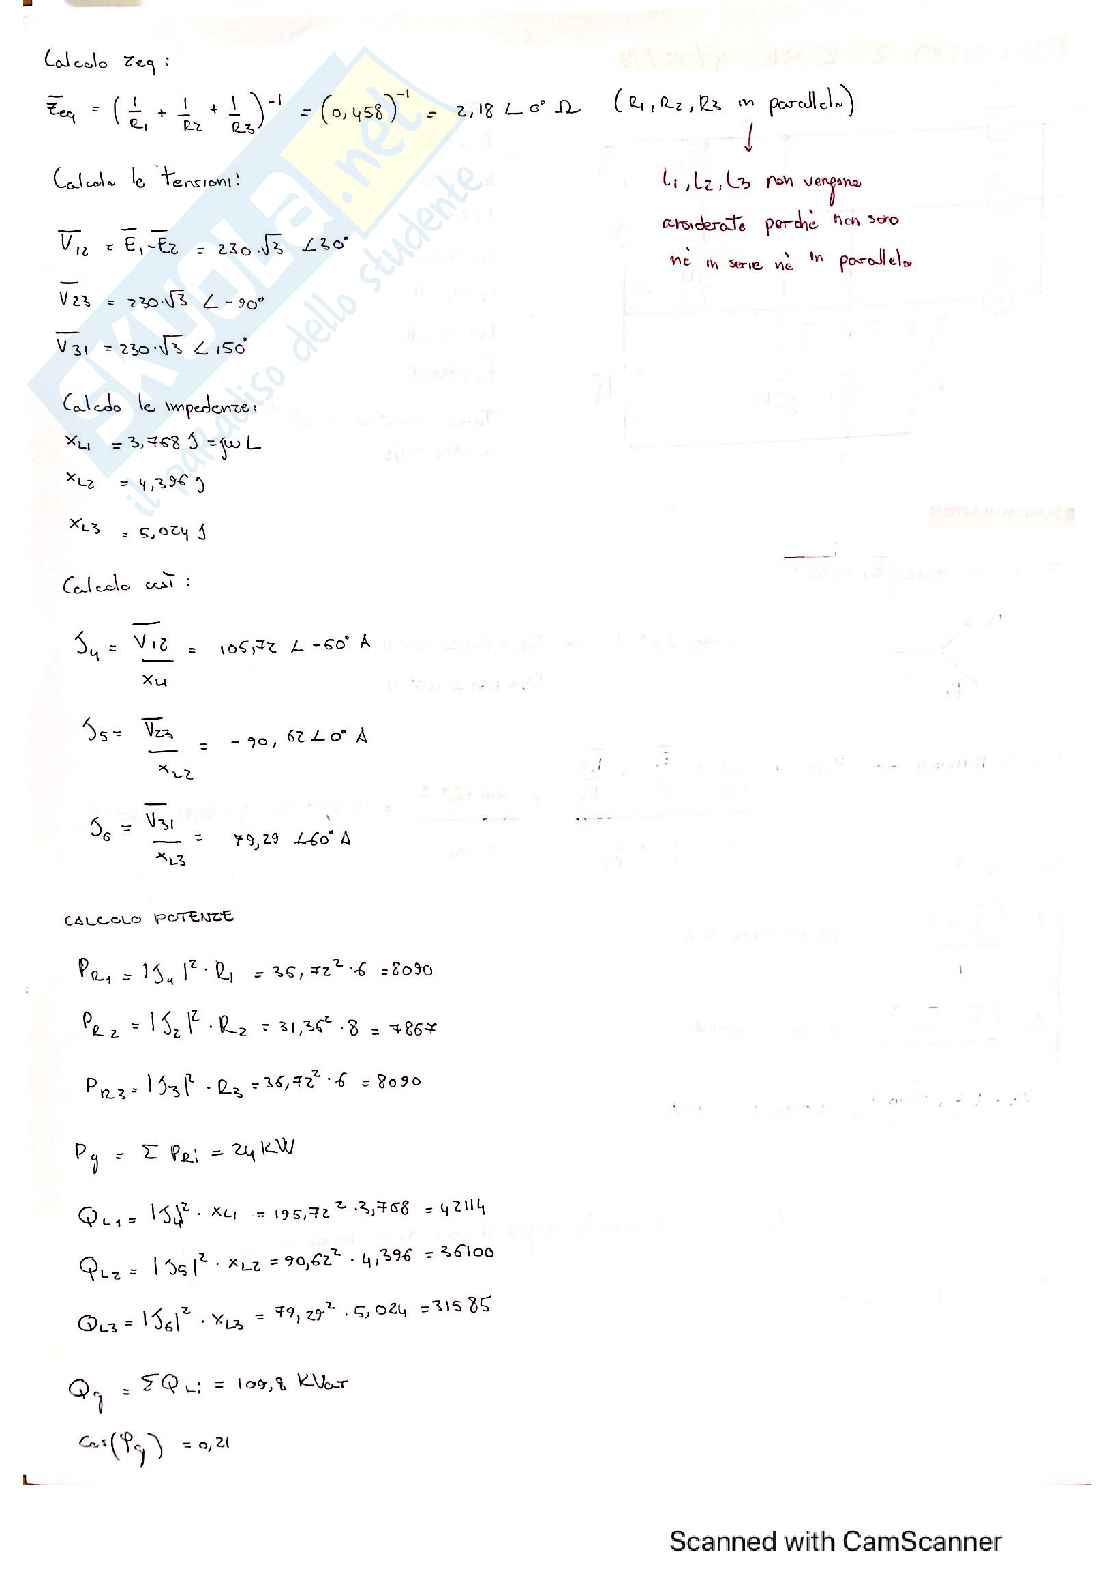 Calcolo Zeq :
Z̅eq = (1/R1 + 1/R2 + 1/R3)^-1 = (0,458)^-1 = 2,18 ∠ 0° Ω (R1, R2, R3 in parallelo)
↓
L1, L2, L3 non vengono
considerate perchè non sono
nè in serie nè in parallelo
Calcolo le tensioni:
V̅12 = E̅1 - E̅2 = 230·√3 ∠30°
V̅23 = 230·√3 ∠ -90°
V̅31 = 230·√3 ∠ 150°
Calcolo le impedenze:
XL1 = 3,768 J = jωL
XL2 = 4,396 J
XL3 = 5,024 J
Calcolo così :
J4 = V̅12 / XL1 = 105,72 ∠ -60° A
J5 = V̅23 / XL2 = - 90,62 ∠ 0° A
J6 = V̅31 / XL3 = 79,29 ∠60° A
CALCOLO POTENZE
PR1 = |J4|² · R1 = 36,72² · 6 = 8090
PR2 = |J2|² · R2 = 31,36² · 8 = 7867
PR3 = |J3|² · R3 = 36,72² · 6 = 8090
Pg = Σ PRi = 24 KW
QL1 = |J4|² · XL1 = 195,72² · 3,768 = 42114
QL2 = |J5|² · XL2 = 90,62² · 4,396 = 36100
QL3 = |J6|² · XL3 = 79,29² · 5,024 = 31585
Qg = ΣQLi = 109,8 KVar
Cos(φg) = 0,21
SKUOLA.net
il paradiso dello studente
Scanned with CamScanner